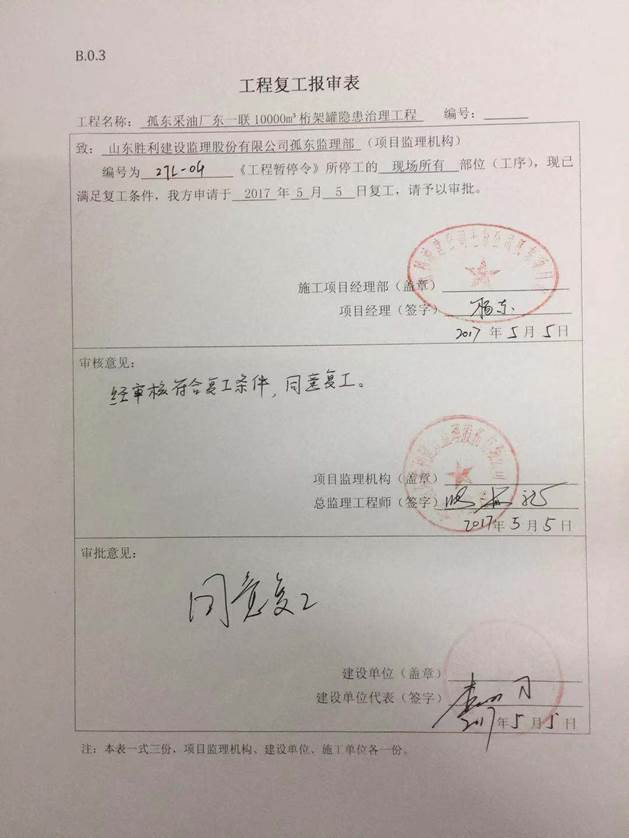 B.0.3
工程复工报审表
工程名称： 孤东采油厂东一联 10000m³桁架罐隐患治理工程 编号：
致： 山东胜利建设监理股份有限公司孤东监理部 （项目监理机构）
编号为 27L-04 《工程暂停令》所停工的 现场所有 部位（工序），现已
满足复工条件，我方申请于 2017 年 5 月 5 日复工，请予以审批。
施工项目经理部（盖章）
项目经理（签字） 杨东
2017 年 5 月 5 日
审核意见：
经审核符合复工条件，同意复工。
项目监理机构（盖章）
总监理工程师（签字）
2017年 5 月 5 日
审批意见：
同意复工
建设单位（盖章）
建设单位代表（签字）
2017年 5 月 5 日
注：本表一式三份，项目监理机构、建设单位、施工单位各一份。